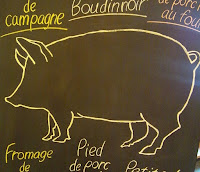 de
campagne
Boudin noir
de porc
au four
Fromage
de
Pied
de porc